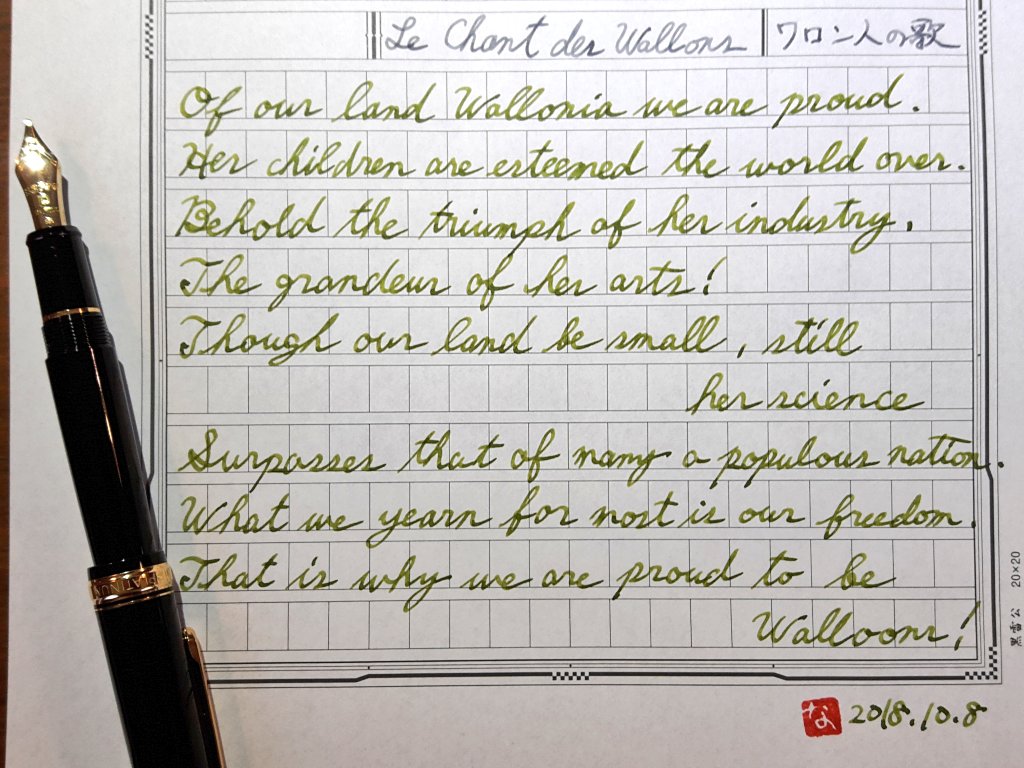 Le Chant des Wallons ワロン人の歌
Of our land Wallonia we are proud.
Her children are esteemed the world over.
Behold the triumph of her industry.
The grandeur of her arts!
Though our land be small, still
her science
Surpasses that of many a populous nation.
What we yearn for most is our freedom.
That is why we are proud to be
Walloons!
20×20
な 2018.10.8